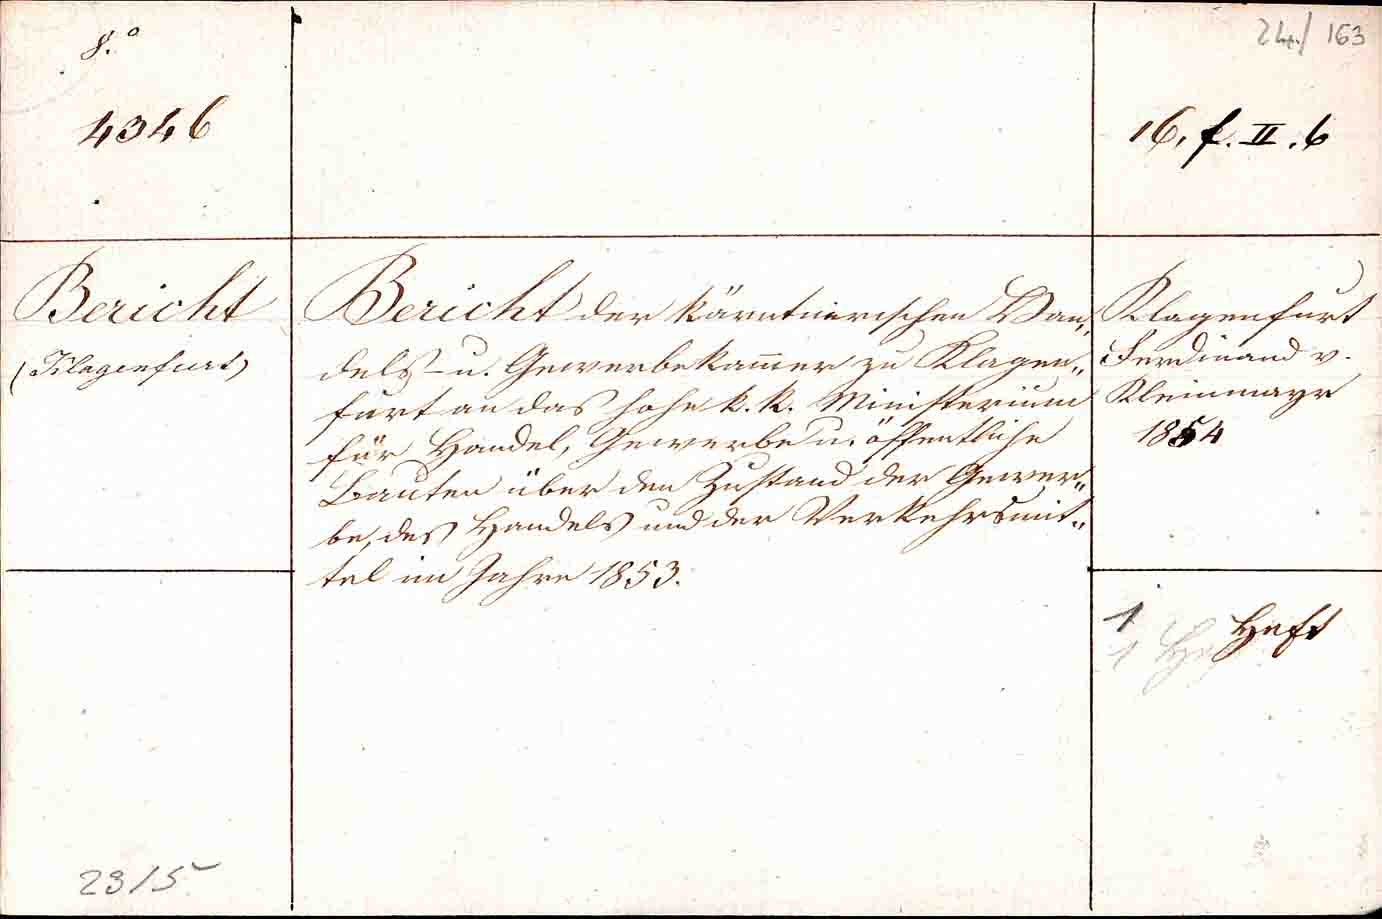 8.°
4346
24./163
16. f. II. 6
Bericht
(Klagenfurt)
Bericht der kärntnerischen Han„
dels- u. Gewerbekam̄er zu Klagen„
furt an das hohe k. k. Ministerium
für Handel, Gewerbe u. öffentliche
Bauten über den Zustand der Gewer„
be, des Handels und der Verkehrsmit„
tel im Jahre 1853.
Klagenfurt
Ferdinand v.
Kleinmayr
1854
1 Heft
1 Heft
2315